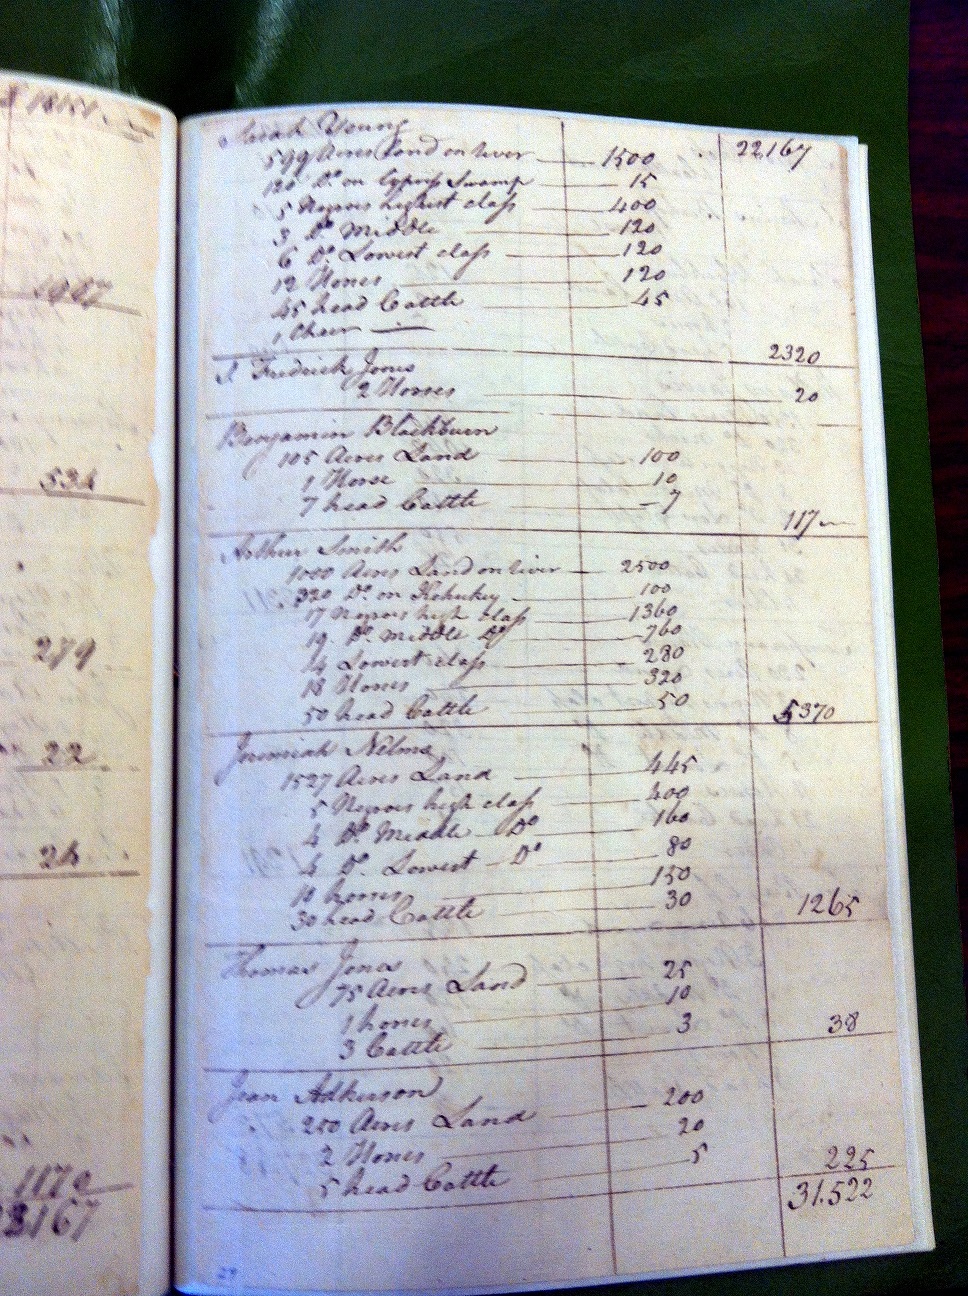 18151
1907
534
279
22
24
1170
23167
Sarah Young 22,167
599 Acres Land on river 1500
120 Do. on Cypress Swamp 15
5 Negroes highest class 400
3 Do. Middle 120
6 Do. Lowest class 120
12 Horses 120
45 head Cattle 45
1 Chair
2320
Fredrick Jones
2 Horses 20
Benjamin Blackburn
105 Acres Land 100
1 Horse 10
7 head Cattle 7
117
Arthur Smith
1000 Acres Land on river 2500
320 Do. on Kehukey 100
17 Negroes high class 1360
19 Do. Middle Do 760
14 Lowest class 280
18 Horses 320
50 head Cattle 50
5370
Jeremiah Nelms
1527 Acres Land 445
5 Negroes high class 400
4 Do. Middle Do 160
4 Do. Lowest Do 80
10 horses 150
30 head Cattle 30
1265
Thomas Jones
75 Acres Land 25
1 horses 10
3 Cattle 3
38
Jean Adkerson
250 Acres Land 200
2 Horses 20
5 head Cattle 5
225
31.522
27